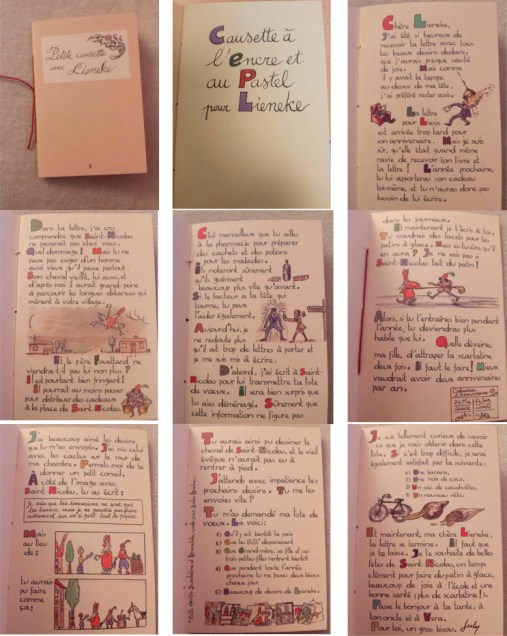 Petite causette
avec Lieneke
Causette à
l'encre et
au Pastel
pour Lieneke
Chère Lieneke,
J'ai été si heureux de
recevoir ta lettre avec tous
tes beaux dessins dedans,
que j'aurais presque sauté
de joie. Mais comme
il y avait la lampe
au-dessus de ma tête,
j'ai préféré rester assis.
La lettre
pour Liesje
est arrivée trop tard pour
son anniversaire. Mais je suis
sûr, qu'elle était quand même
ravie de recevoir ton livre et
ta lettre ! L'année prochaine,
tu lui apporteras son cadeau
toi-même, et tu n'auras donc pas
besoin de lui écrire.
Dans ta lettre, j'ai cru
comprendre que Saint-Nicolas
ne passerait pas chez vous.
Quel dommage ! Mais tu ne
peux pas exiger d'un homme
aussi vieux qu'il passe partout.
Son cheval vieillit, lui aussi, et
d'après moi il aurait grand-peine
à parcourir les longues distances qui
mènent à votre village.
Et le père Fouettard ne
viendra-t-il pas lui non plus ?
Il est pourtant bien fringant !
Il pourrait au moins passer
pour distribuer des cadeaux
à la place de Saint-Nicolas.
C'est merveilleux que tu ailles
à la pharmacie pour préparer
des cachets et des potions
pour les malades.
Ils noteront sûrement
qu'ils guérissent
beaucoup plus vite qu'avant.
Si le facteur a la tête qui
tourne, tu peux
l'aider également.
Aujourd'hui, je
ne redoute plus
qu'il ait trop de lettres à porter et
je me suis mis à écrire.
D'abord, j'ai écrit à Saint-
Nicolas pour lui transmettre ta liste
de vœux. Il sera bien surpris que
tu aies déménagé. Sûrement que
cette information ne figure pas
dans les journaux.
Et maintenant je t'écris à toi.
Tu voudrais des hauts pour les
patins à glace. Mais es-tu sûre qu'il
en aura ? Je ne sais pas si
Saint-Nicolas fait du patin !
Alors, si tu t'entraînes bien pendant
l'année, tu deviendras plus
habile que lui. Quelle déveine,
ma fille, d'attraper la scarlatine
deux fois. Il faut le faire ! Mieux
vaudrait avoir deux anniversaires
par an.
J'ai beaucoup aimé les dessins
que tu m'as envoyés. J'ai mis celui
avec les cactus sur le mur de
ma chambre. Permets-moi de te
donner un petit conseil.
À côté de l'image avec
Saint-Nicolas, tu as écrit :
Je sais que les dimensions ne sont pas
les bonnes, mais je ne pouvais pas faire
autrement car on n'a guère tant de papier.
Mais au
lieu de :
tu aurais
pu faire
comme
ça :
Tu aurais aussi pu dessiner le
cheval de Saint-Nicolas, et le vieil
évêque n'aurait pas eu à
rentrer à pied.
J'attends avec impatience tes
prochains dessins. Tu me les
envoies vite ?
Tu m'as demandé ma liste de
vœux. La voici :
Je suis tellement curieux de savoir
ce que je vais obtenir dans cette
liste. Si c'est trop difficile, je serai
également satisfait par la suivante :
Une banane.
Une noix de coco.
Un sac de cacahuètes.
Un nouveau vélo.
Et maintenant, ma chère Lieneke,
la lettre se termine. Il faut que
je te laisse. Je te souhaite de belles
fêtes de Saint-Nicolas, un temps
clément pour faire du patin à glace,
beaucoup de joie à l'école et une
bonne santé (plus de scarlatine !).
Passe le bonjour à ta tante, à
ton oncle et à Vera.
Pour toi, un gros bisou.